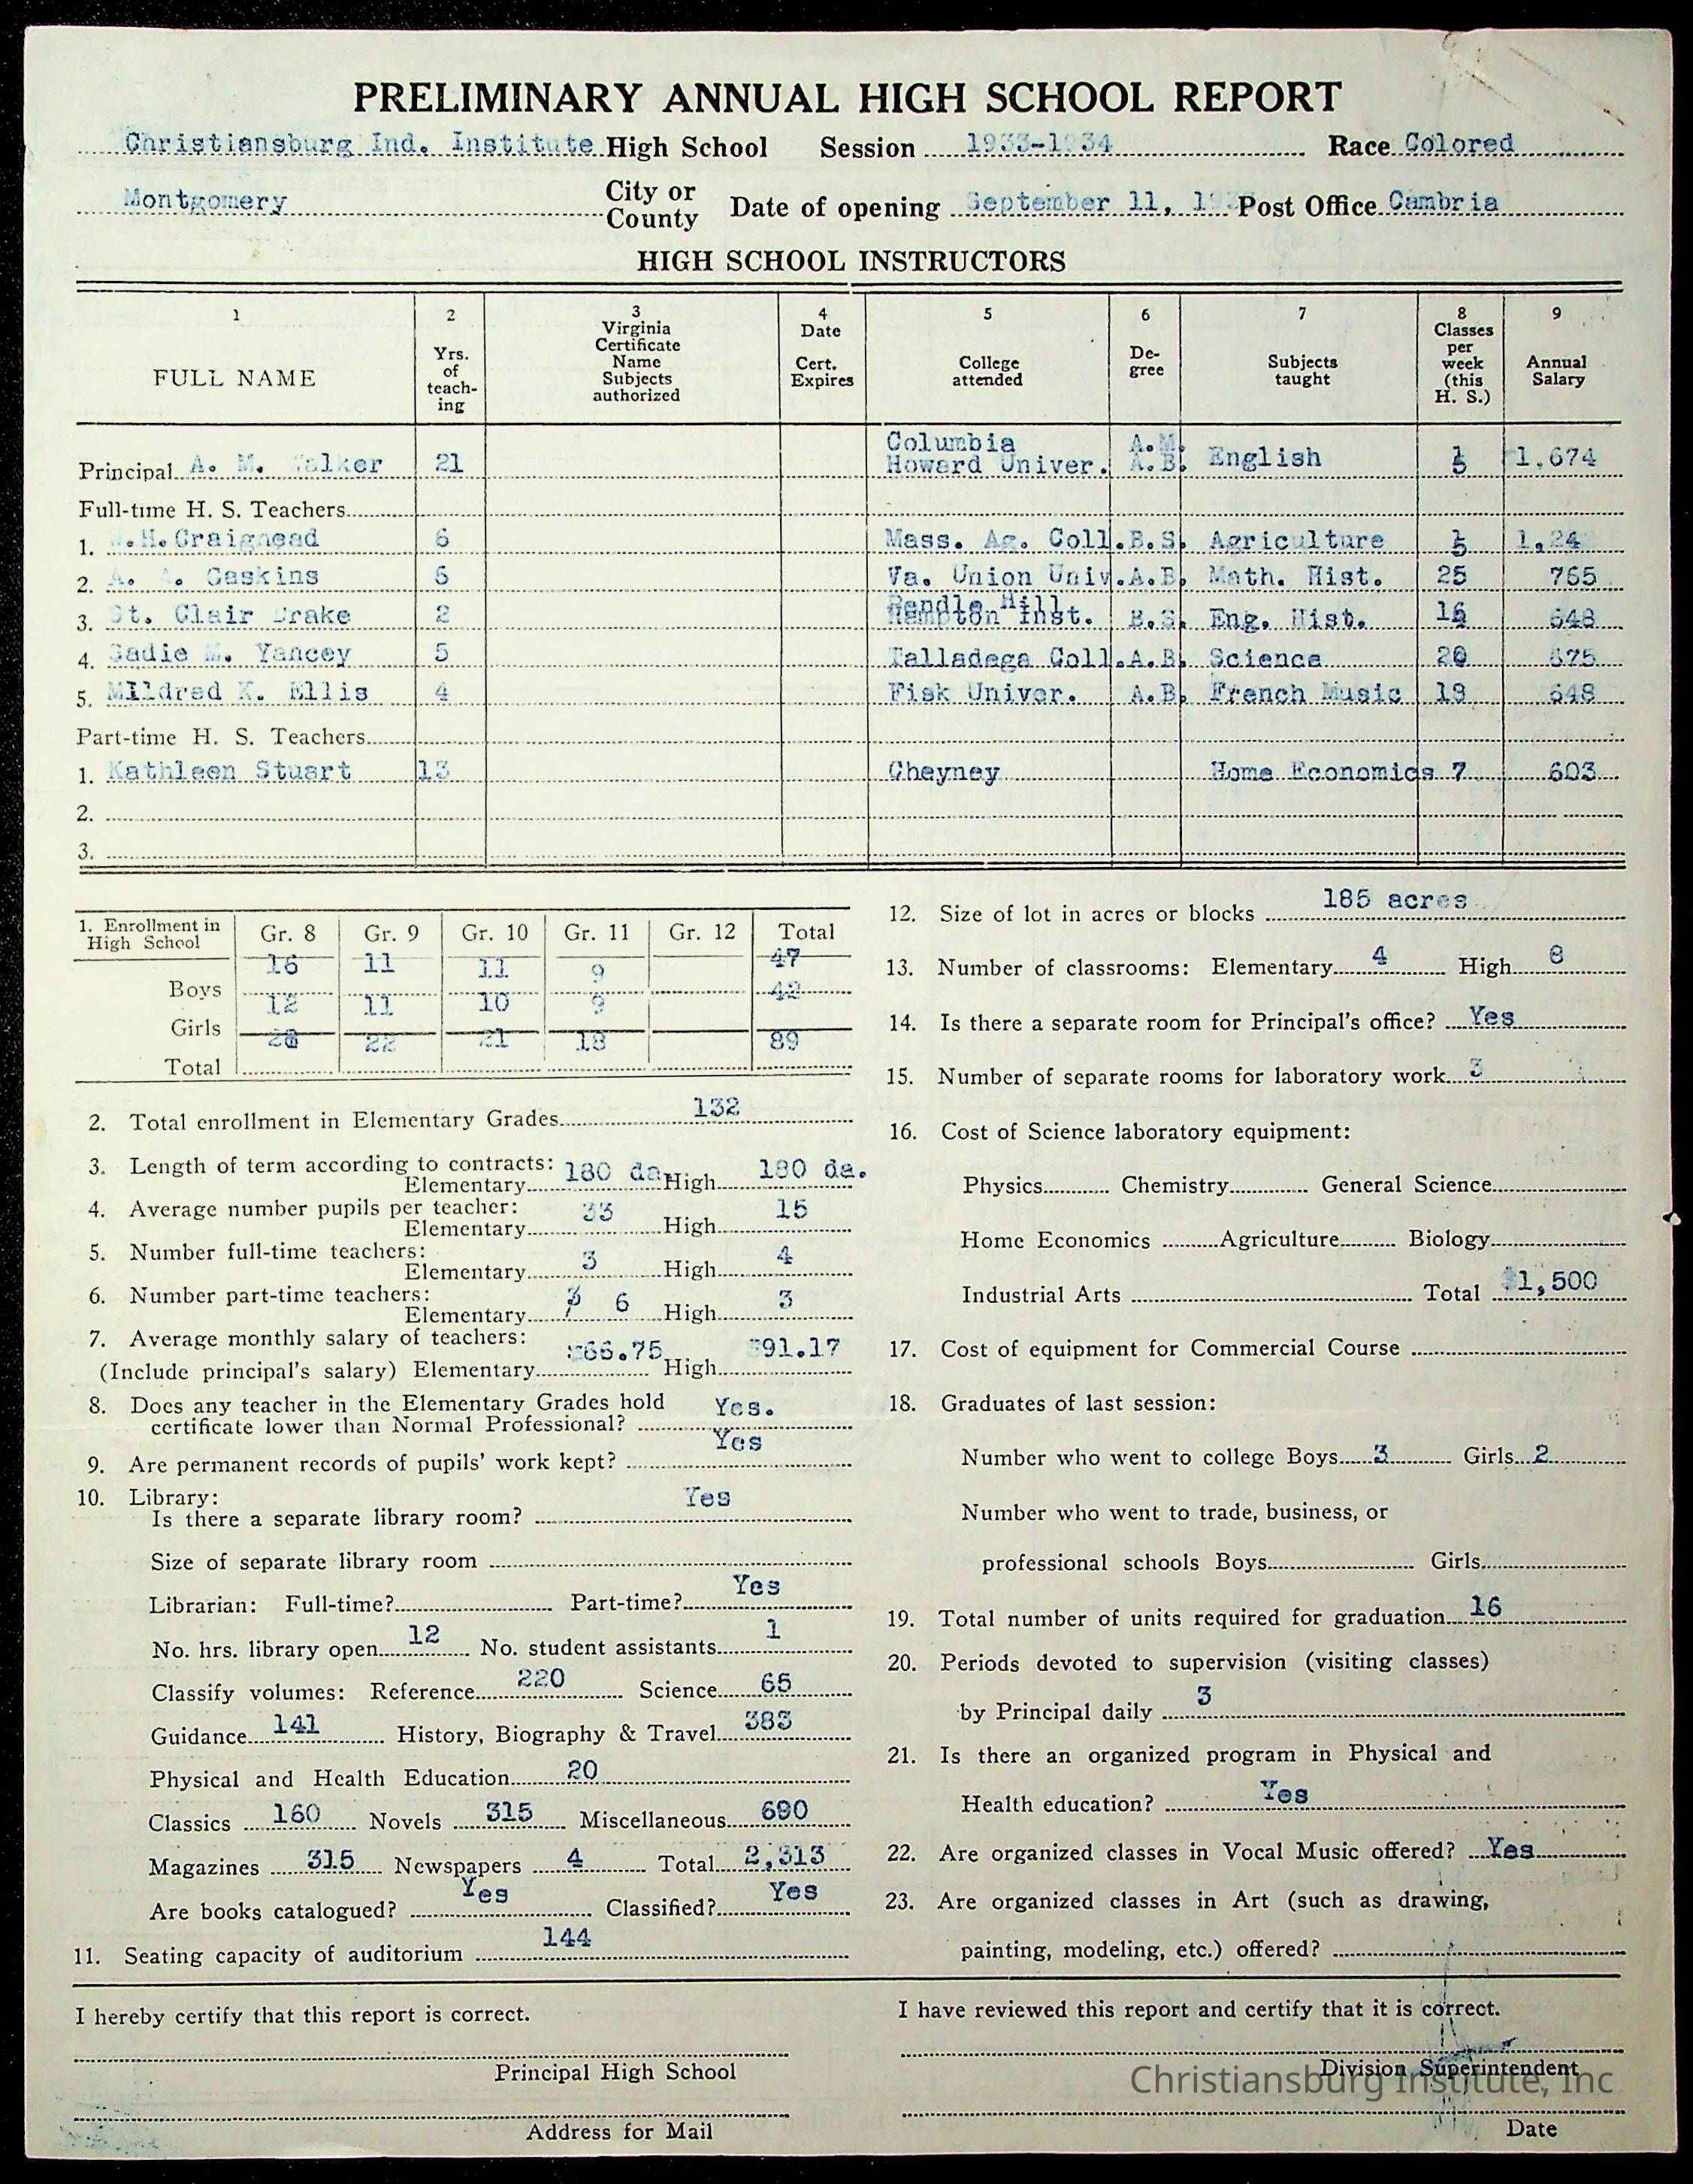 PRELIMINARY ANNUAL HIGH SCHOOL REPORT
Christiansburg Ind. Institute High School Session 1933-1934 Race Colored
Montgomery City or County Date of opening September 11, Post Office Cambria
HIGH SCHOOL INSTRUCTORS
1 2 3 4 5 6 7 8 9
FULL NAME Yrs. of teach- ing Virginia Certificate Name Subjects authorized Date Cert. Expires College attended De- gree Subjects taught Classes per week (this H. S.) Annual Salary
Columbia A.M.
Principal A. M. Walker 21 Howard Univer. A.B. English 5 1,674
Full-time H. S. Teachers
1. .H. Craighead 6 Mass. Ag. Coll. B.S. Agriculture 5 1,24
2. A. A. Gaskins 6 Va. Union Univ. A.B. Math. Hist. 25 765
Pendle Hill
3. St. Clair Drake 2 Hampton Inst. B.S. Eng. Hist. 648
4. Sadie M. Yancey 5 Talladega Coll. A.B. Science 20 675
5. MIldred K. Ellis 4 Fisk Univer. A.B. French Music 18 648
Part-time H. S. Teachers
1. Kathleen Stuart 13 Cheyney Home Economics 7 603
2.
3.
1. Enrollment in High School Gr. 8 Gr. 9 Gr. 10 Gr. 11 Gr. 12 Total
Boys 16 11 11 9 47
Girls 12 11 10 9 42
Total 28 22 21 18 89
2. Total enrollment in Elementary Grades 132
3. Length of term according to contracts:
Elementary 180 da. High 180 da.
4. Average number pupils per teacher:
Elementary 33 High 15
5. Number full-time teachers:
Elementary 3 High 4
6. Number part-time teachers:
Elementary 3 6 High 3
7. Average monthly salary of teachers:
(Include principal's salary) Elementary $66.75 High $91.17
8. Does any teacher in the Elementary Grades hold
certificate lower than Normal Professional? Yes.
9. Are permanent records of pupils' work kept? Yes
10. Library:
Is there a separate library room? Yes
Size of separate library room
Librarian: Full-time? Part-time? Yes
No. hrs. library open 12 No. student assistants 1
Classify volumes: Reference 220 Science 65
Guidance 141 History, Biography & Travel 383
Physical and Health Education 20
Classics 160 Novels 315 Miscellaneous 690
Magazines 315 Newspapers 4 Total 2,313
Are books catalogued? Yes Classified? Yes
11. Seating capacity of auditorium 144
12. Size of lot in acres or blocks 185 acres
13. Number of classrooms: Elementary 4 High 8
14. Is there a separate room for Principal's office? Yes
15. Number of separate rooms for laboratory work 3
16. Cost of Science laboratory equipment:
Physics Chemistry General Science
Home Economics Agriculture Biology
Industrial Arts Total $1,500
17. Cost of equipment for Commercial Course
18. Graduates of last session:
Number who went to college Boys 3 Girls 2
Number who went to trade, business, or
professional schools Boys Girls
19. Total number of units required for graduation 16
20. Periods devoted to supervision (visiting classes)
by Principal daily 3
21. Is there an organized program in Physical and
Health education? Yes
22. Are organized classes in Vocal Music offered? Yes
23. Are organized classes in Art (such as drawing,
painting, modeling, etc.) offered?
I hereby certify that this report is correct.
Principal High School
Address for Mail
I have reviewed this report and certify that it is correct.
Division Superintendent
Christiansburg Institute, Inc
Date